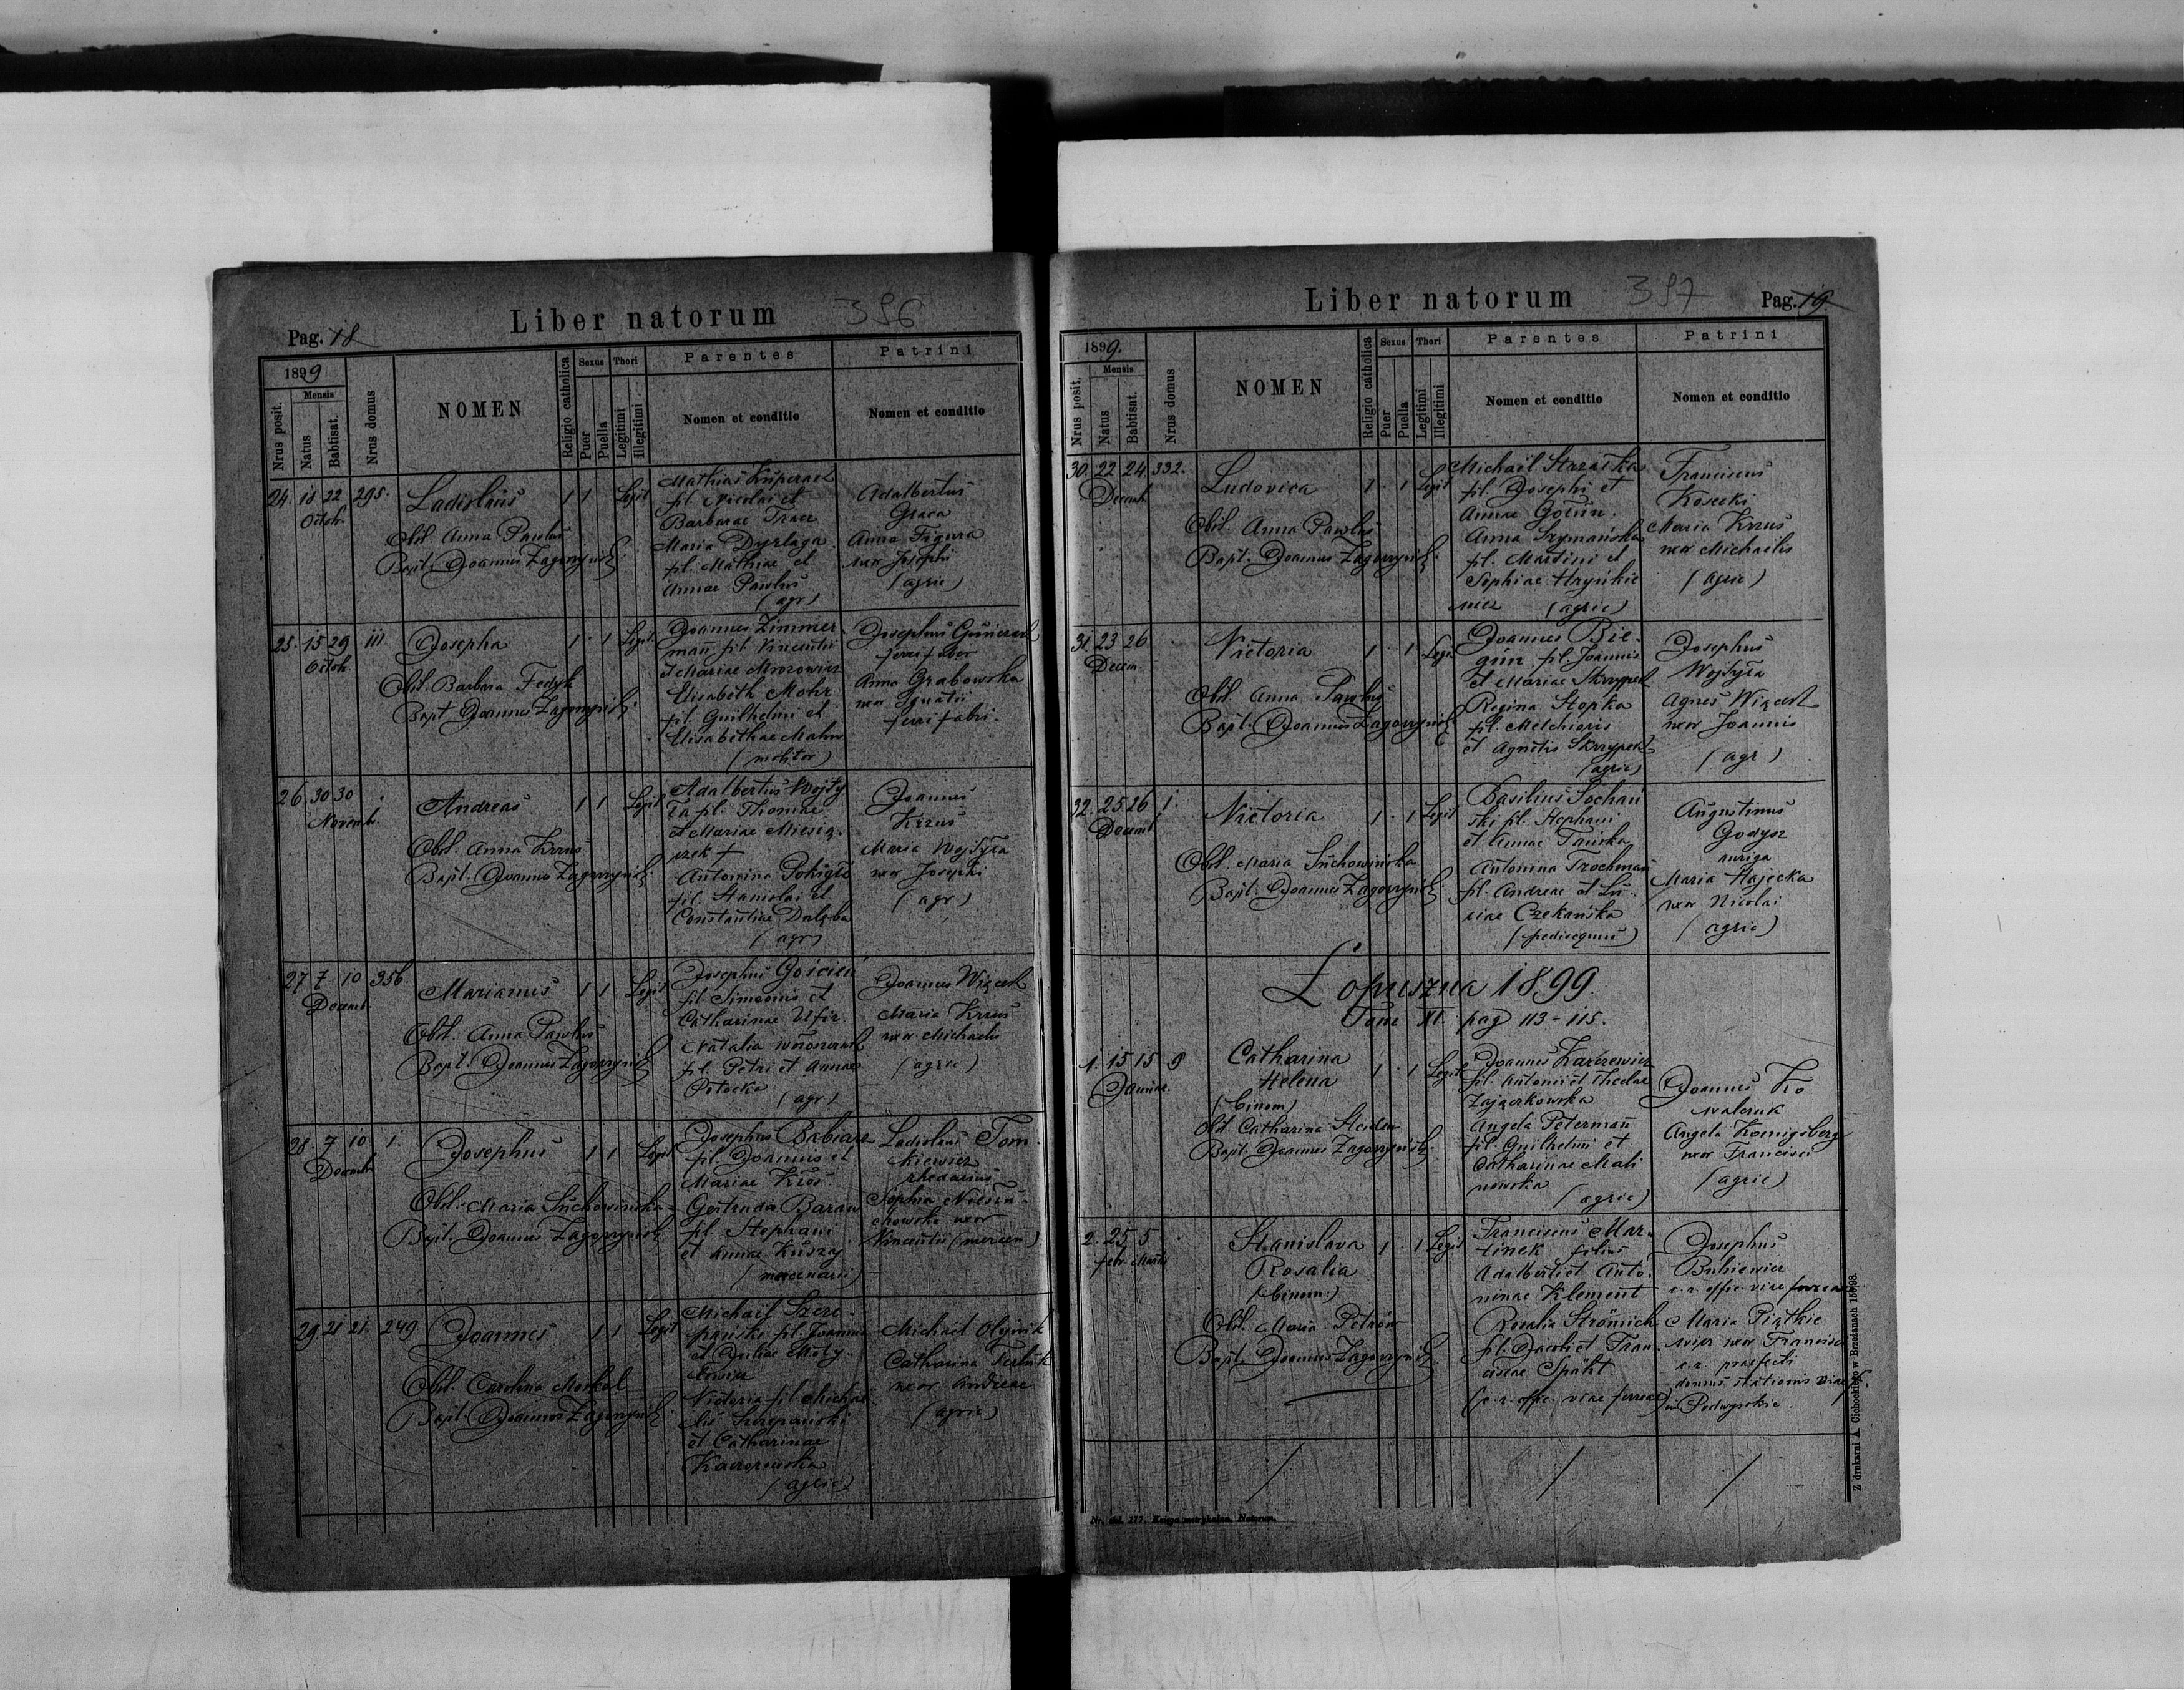 Liber natorum 396
Pag. 18
1899
Mensis
Nrus posit.
Natus
Babtisat.
Nrus domus
NOMEN
Religio catholica
Sexus
Puer
Puella
Thori
Legitimi
Illegitimi
Parentes
Nomen et conditio
Patrini
Nomen et conditio
24. 18 22 295.
Octob.
Ladislaus 1 1 Legit
Obst. Anna Pawluś
Bapt. Joannes
fil. Nicolai et
Barbarae
Maria Dyrlaga
fil. Mathiae et
Annae Pawluś
(agr)
Adalbertus
Graca
Anna Figura
uxor Josephi
(agric)
25. 15 29 111
Octob.
Josepha 1 1 Legit
Obst. Barbara Fedyk
Bapt. Joannes
Joannes Zimmer
man fil. Vincentii
et Mariae Mrozowicz
Elisabeth Mohr
fil. Guilhelmi et
Elisabethae
(molitor)
Josephus
ferrifaber
Anna Grabowska
uxor Ignatii
ferrifabri.
26. 30 30
Novemb.
Andreas 1 1 Legit
Obst. Anna Krzuś
Bapt. Joannes
Adalbertus Wojty
ła fil. Thomae
et Mariae Miesią
czek +
Antonina
fil. Stanislai et
Constantiae
(agr)
Joannes
Krzuś
Maria Wojtyła
uxor Josephi
(agr)
27 7 10 356.
Decemb.
Marianus 1 1 Legit
Obst. Anna Pawluś
Bapt. Joannes
Josephus Goścień
fil. Simeonis et
Catharinae
Natalia
fil. Petri et Annae
Potocka
(agr)
Joannes Więcek
Maria Krzuś
uxor Michaelis
(agric)
28 7 10 1.
Decemb.
Josephus 1 1 Legit
Obst. Maria Suchowińska
Bapt. Joannes
Josephus Babiarz
fil. Joannis et
Mariae Kroś
Gertruda Baran
fil. Stephani
et Annae
(mercenarii)
Ladislaus Tom
kiewicz
rhedarius
Sophia
uxor
Vincentii (mercen)
29. 21 21. 249
Joannes 1 1 Legit
Obst. Carolina Moskal
Bapt. Joannes
Michael Szcze
pański fil. Joannis
et Juliae
Victoria fil. Michae
lis Szczepański
et Catharinae
(agric)
Michael Olejnik
Catharina
uxor Andreae
(agric)
Liber natorum 397
Pag. 19
1899.
Mensis
Nrus posit.
Natus
Babtisat.
Nrus domus
NOMEN
Religio catholica
Sexus
Puer
Puella
Thori
Legitimi
Illegitimi
Parentes
Nomen et conditio
Patrini
Nomen et conditio
30. 22 24 332.
Decemb.
Ludovica 1 1 Legit
Obst. Anna Pawluś
Bapt. Joannes
Michael
fil. Josephi et
Annae
Anna Szymańska
fil. Martini et
Sophiae Hryńkie
wicz (agric)
Franciscus
Kosecki
Maria Krzuś
uxor Michaelis
(agric)
31. 23 26
Decem.
Victoria 1 1 Legit
Obst. Anna Pawluś
Bapt. Joannes
Joannes Bie
gun fil. Joannis
et Mariae Skrzypek
Regina Stopka
fil. Melchioris
et Agnetis Skrzypek
(agric)
Josephus
Wojtyła
Agnes Więcek
uxor Joannis
(agr)
32. 25 26 1.
Decemb.
Victoria 1 1 Legit
Obst. Maria Suchowińska
Bapt. Joannes
Basilius Sochań
ski fil. Stephani
et Annae
Antonina Trochman
fil. Andreae et Lu
ciae Czekańska
(pedissequus)
Augustinus
Godysz
auriga
Maria Hajecka
uxor Nicolai
(agric)
Łopuszna 1899
Tom XI. pag 113-115.
1. 15 15 9
Januar.
Catharina
Helena 1 1 Legit
(binom)
Obst. Catharina
Bapt. Joannes
Joannes
fil. Antonii et Theclae
Zajączkowska
Angela Peterman
fil. Guilhelmi et
Catharinae Mali
nowska
(agric)
Joannes Ko
walczuk
Angela Koenigsberg
uxor Francisci
(agric)
2. 25 5
febr. Martii
Stanislava 1 1 Legit
Rosalia
(binom.)
Obst. Maria
Bapt. Joannes
Franciscus Mar
tinek filius
Adalberti et Anto
ninae Klement
Rosalia Strömich
fil. Jacobi et Fran
ciscae Späht
(c. r. offic. viae ferreae)
Josephus
c. r. offic. viae ferreae
Maria Piątkie
wicz uxor Francisci
c. r. praefecti
domus stationis viae f.
in Podwysokie.
Nr. skł. 177. Księga metrykalna. Natorum.
Z drukarni A. Cichockiego w Brzeżanach 150/98.